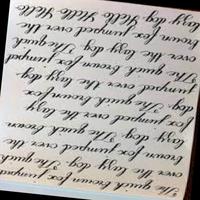 The quick brown fox jumped
over the lazy dog The quick
brown fox jumped over the
lazy dog The quick brown
fox jumped over the lazy
dog The quick brown fox
jumped over the lazy dog
The quick brown fox jumped
over the lazy dog The quick
brown fox jumped over the
lazy dog Hello Hello Hello